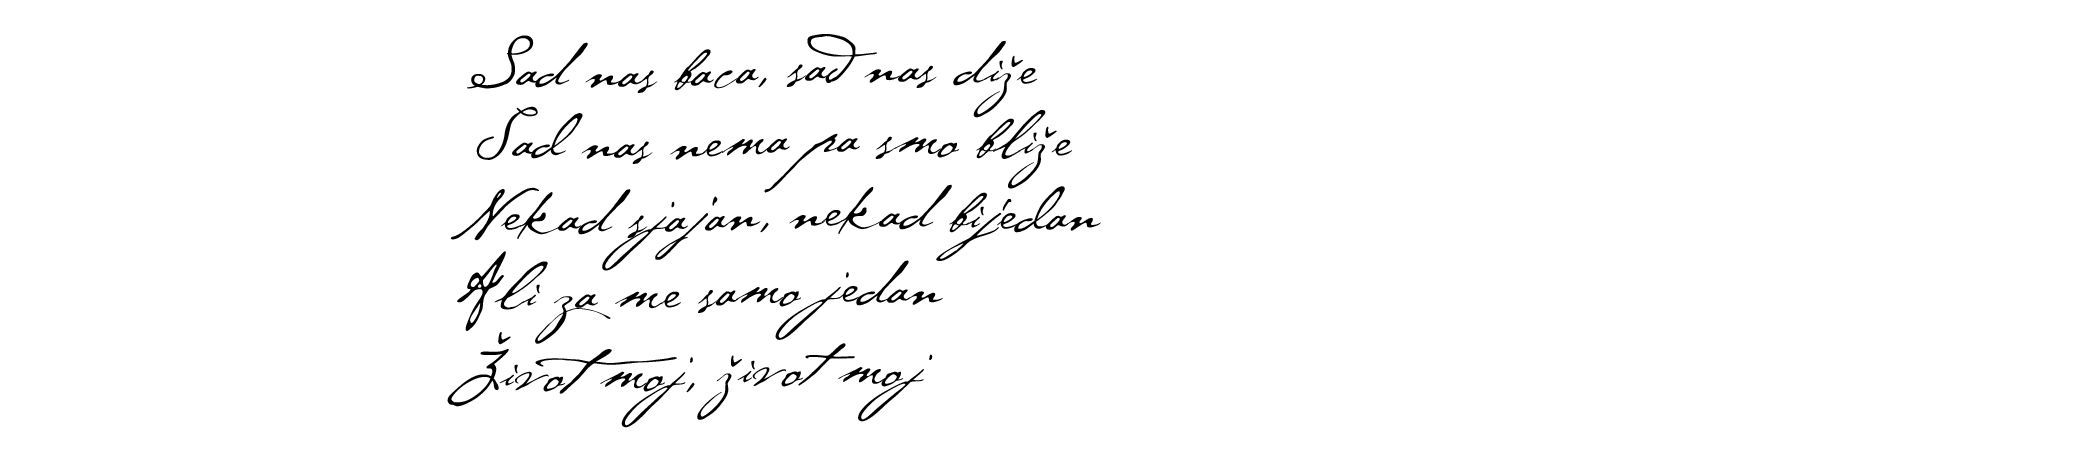 Sad nas baca, sad nas diže
Sad nas nema pa smo bliže
Nekad sjajan, nekad bijedan
Ali za me samo jedan
Život moj, život moj